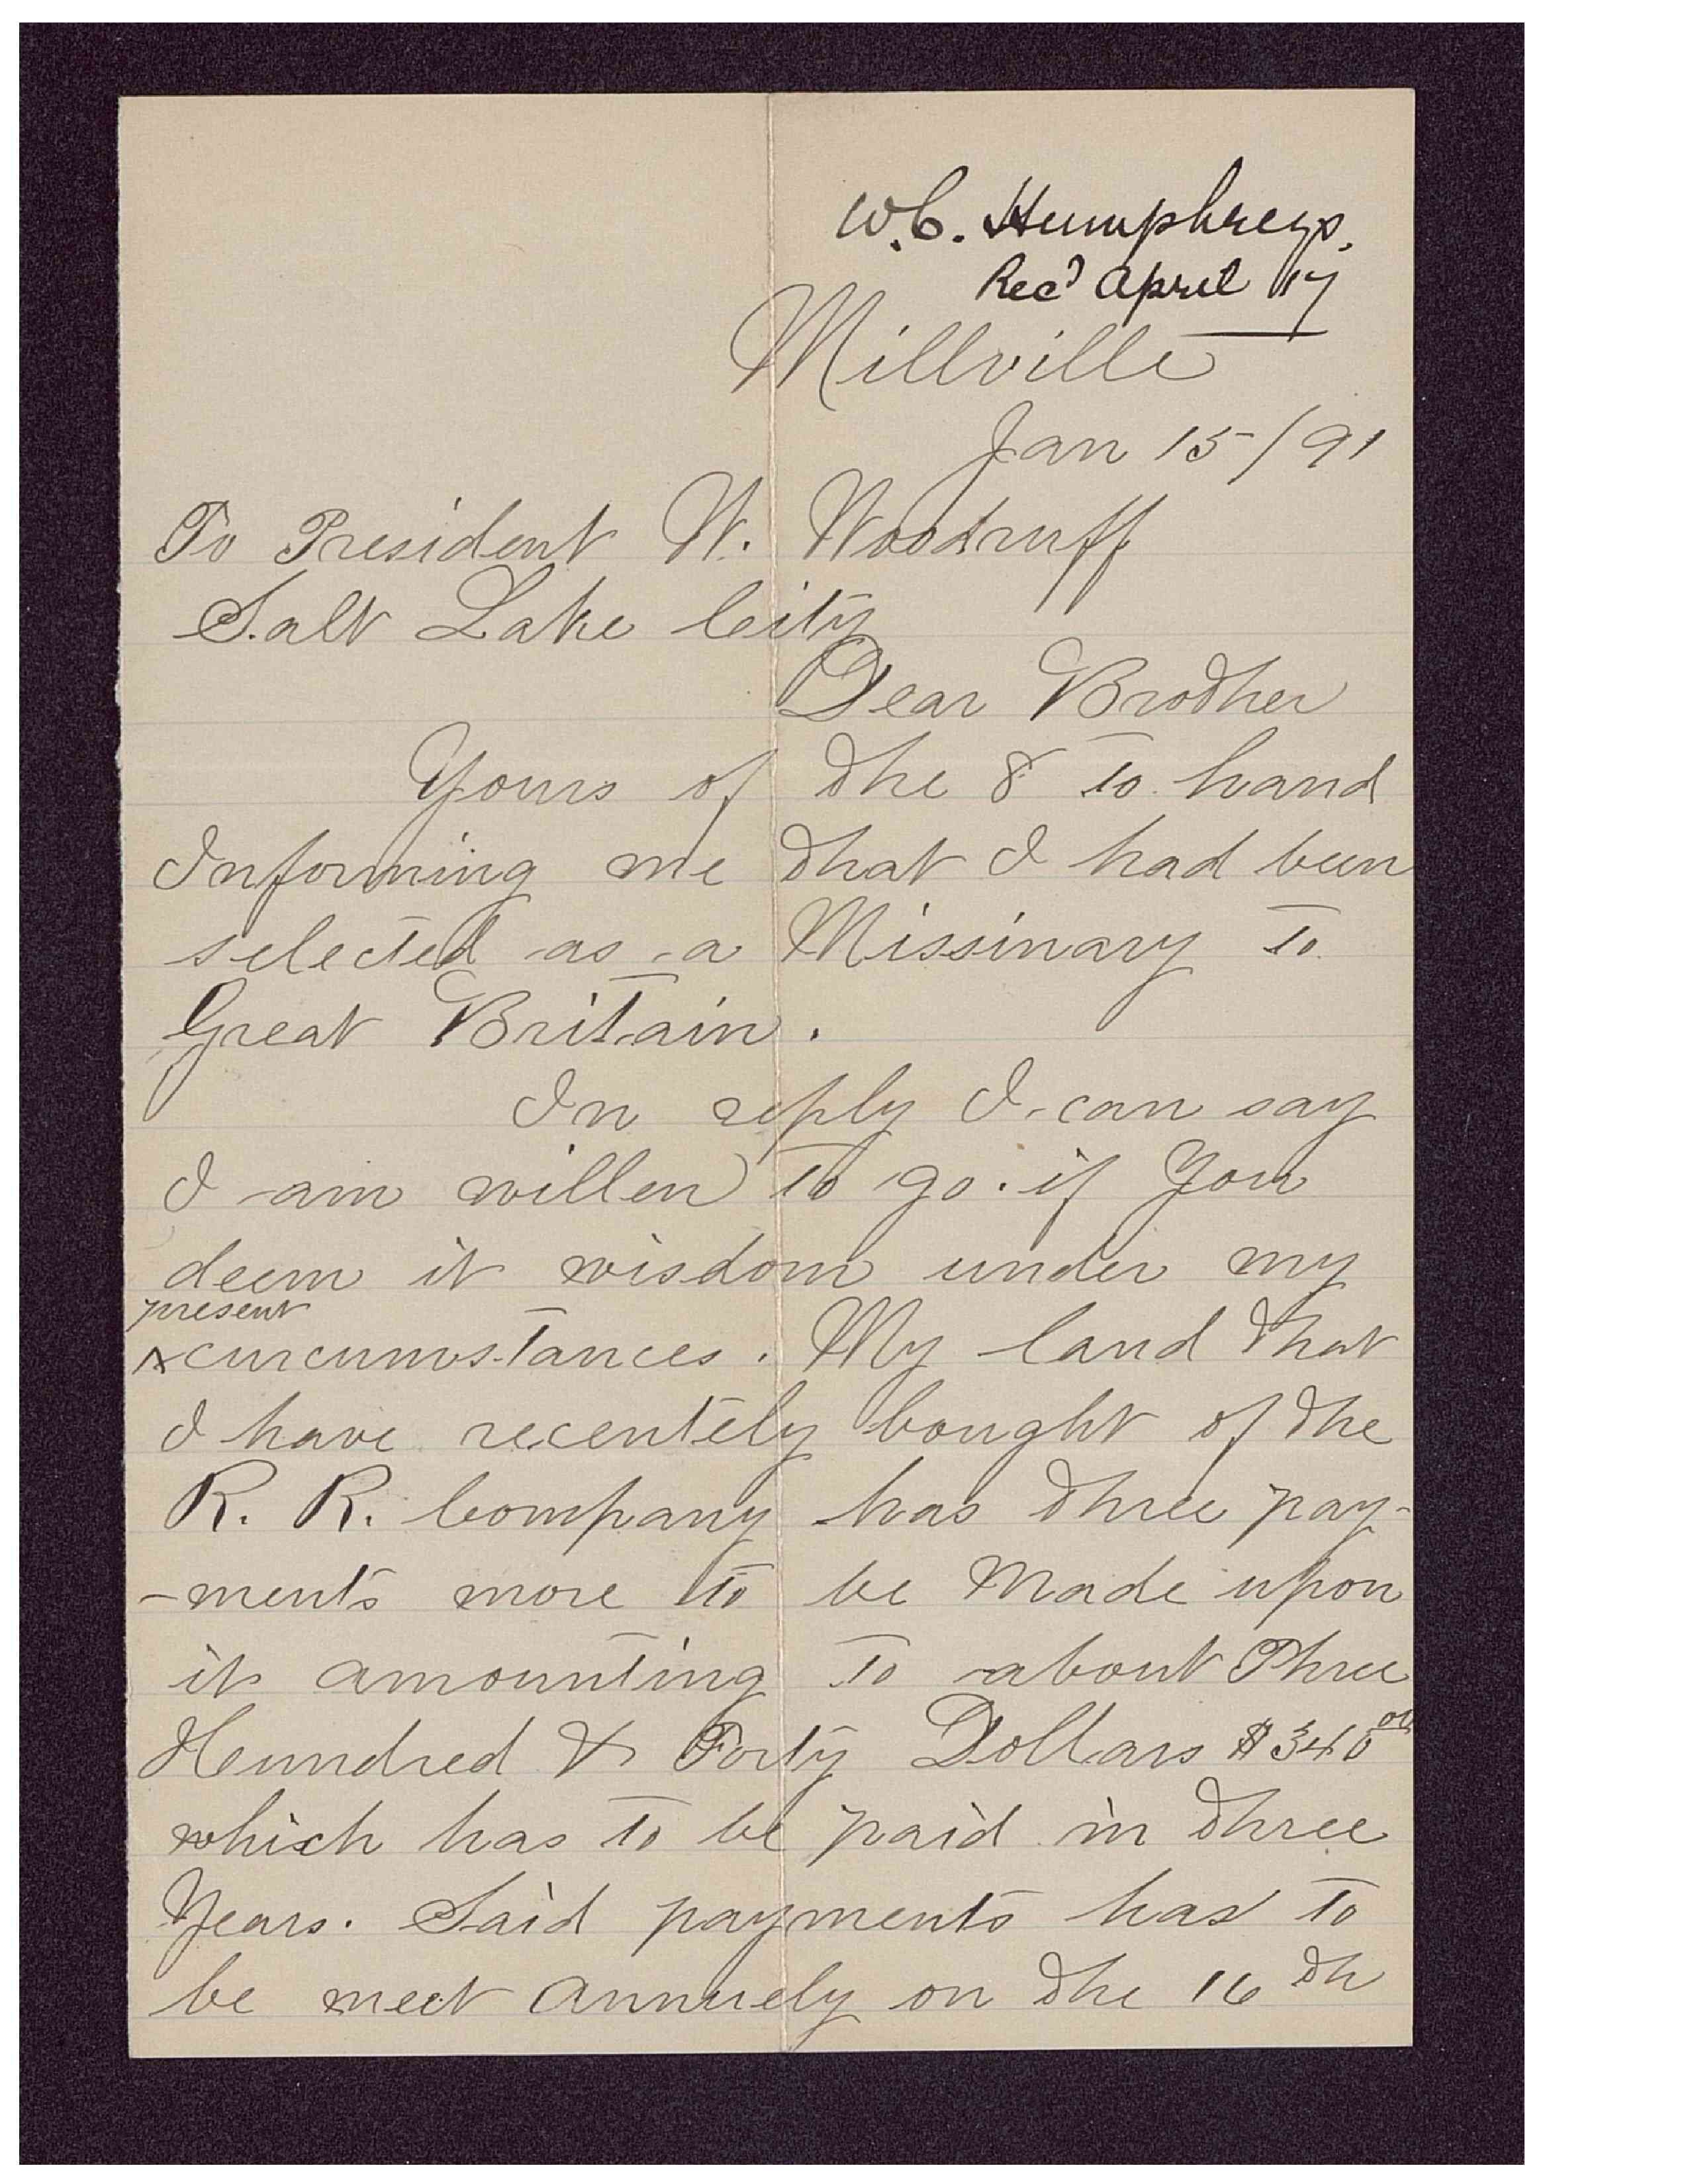 W.C. Humphreys.
Rec'd April 17
Millville
Jan 15/91
To President W. Woodruff
Salt Lake City
Dear Brother
Yours of the 8 to hand
Informing me that I had been
selected as a Missinary to
Great Britain.
In reply I can say
I am willen to go. if You
deem it wisdom under my
present
^ curcumstances. My land that
I have recentely bought of the
R. R. Company has three pay-
-ments more to be Made upon
it amounting to about Three
Hundred & Forty Dollars $340.00
which has to be paid in three
Years. Said payments has to
be meet Annuely on the 16th